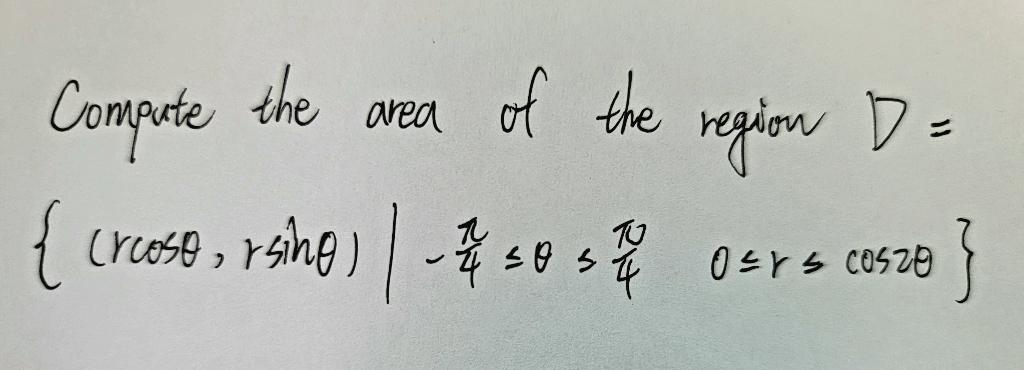 Compute the area of the region D =
{ (rcosθ, rsinθ) | -π/4 ≤ θ ≤ π/4 0 ≤ r ≤ cos2θ }